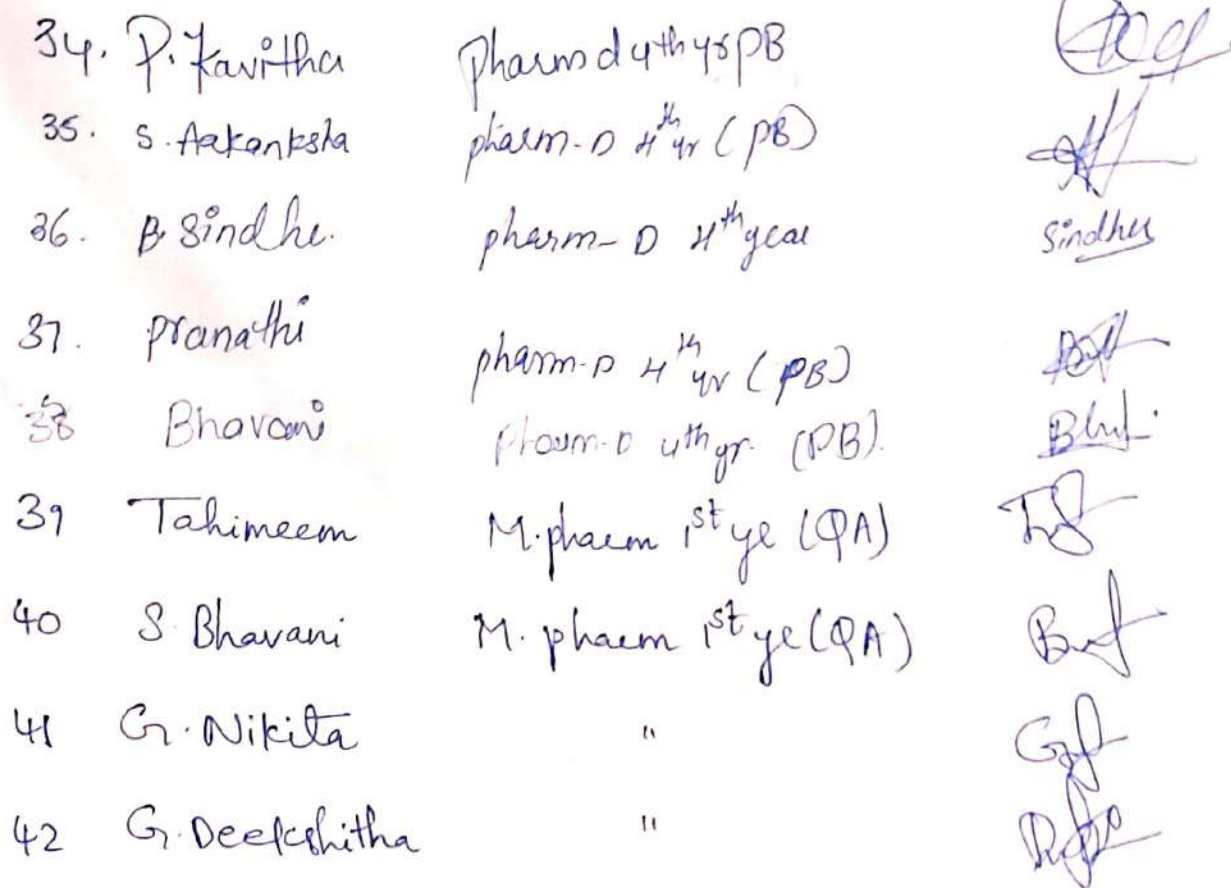 34. P. Kavitha Pharm d 4th yr PB
35. S. Aakanksha pharm-D 4th yr (PB)
36. B. Sindhu. pharm-D 4th year Sindhu
37. Pranathi pharm-D 4th yr (PB)
38 Bhavani Pharm-D 4th yr. (PB).
39 Tahimeem M.pharm 1st ye (QA)
40 S. Bhavani M. pharm 1st ye (QA)
41 G. Nikita "
42 G. Deekshitha "